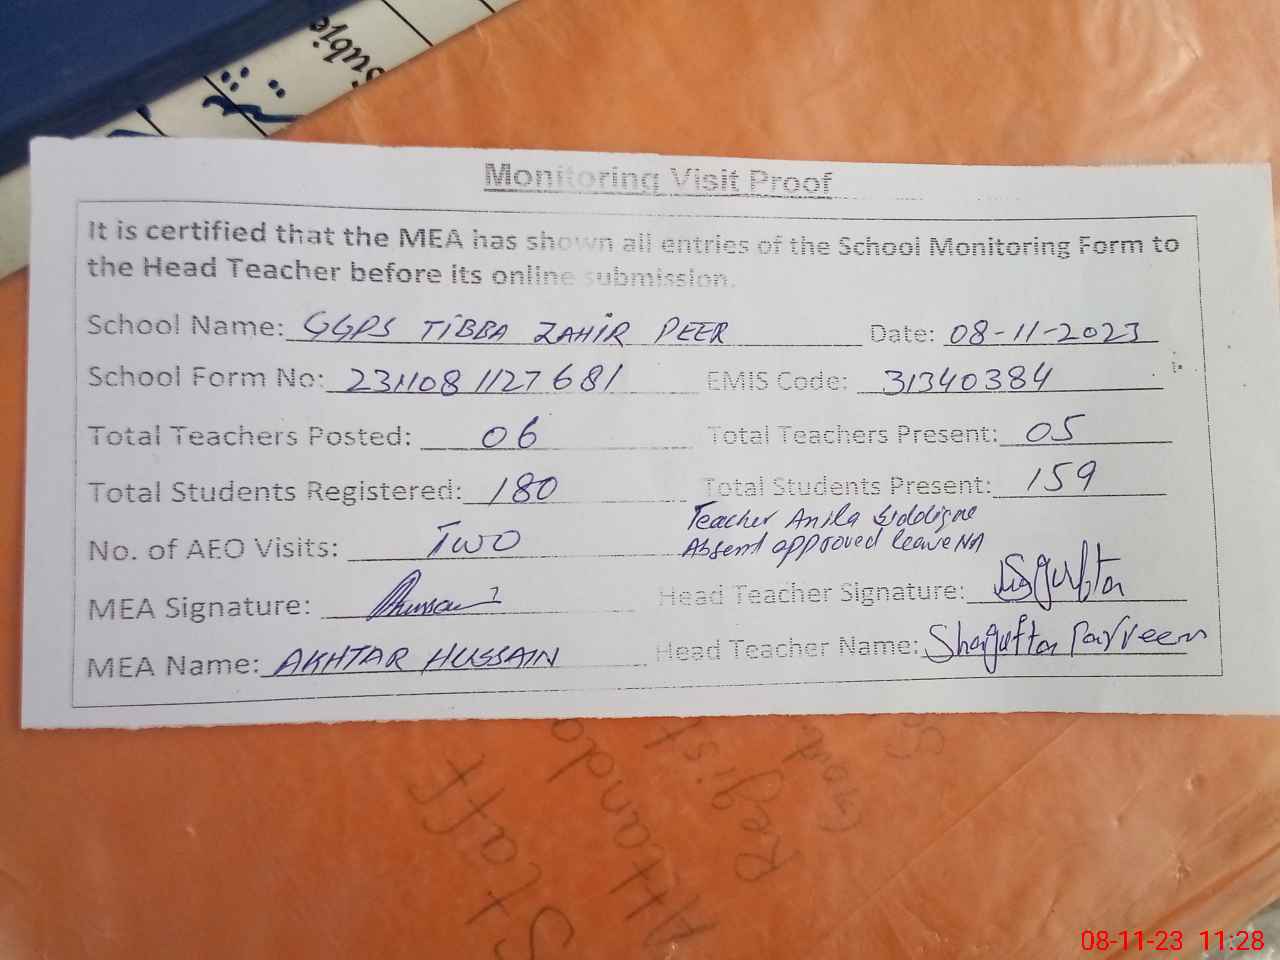 Subje
Monitoring Visit Proof
It is certified that the MEA has shown all entries of the School Monitoring Form to
the Head Teacher before its online submission.
School Name: GGPS TIBBA ZAHIR PEER Date: 08-11-2023
School Form No: 231108 1127681 EMIS Code: 31340384
Total Teachers Posted: 06 Total Teachers Present: 05
Total Students Registered: 180 Total Students Present: 159
Teacher Anila Siddique
No. of AEO Visits: Two Absent approved leave NA
MEA Signature: Head Teacher Signature: Shgufta
MEA Name: AKHTAR HUSSAIN Head Teacher Name: Shagufta Parveen
Staff
Attando
Regist
08-11-23 11:28